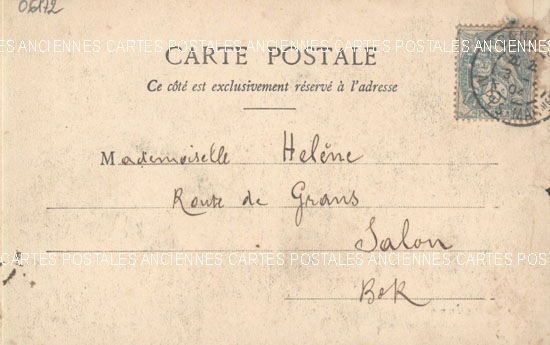 06172
CARTES POSTALES ANCIENNES CARTES POSTALES ANCIENNES CARTES POSTALES
CARTE POSTALE
Ce côté est exclusivement réservé à l'adresse
Mademoiselle Helène
Route de Grans
Salon
CARTES POSTALES ANCIENNES CARTES POSTALES ANCIENNES CARTES POSTALES
BdR